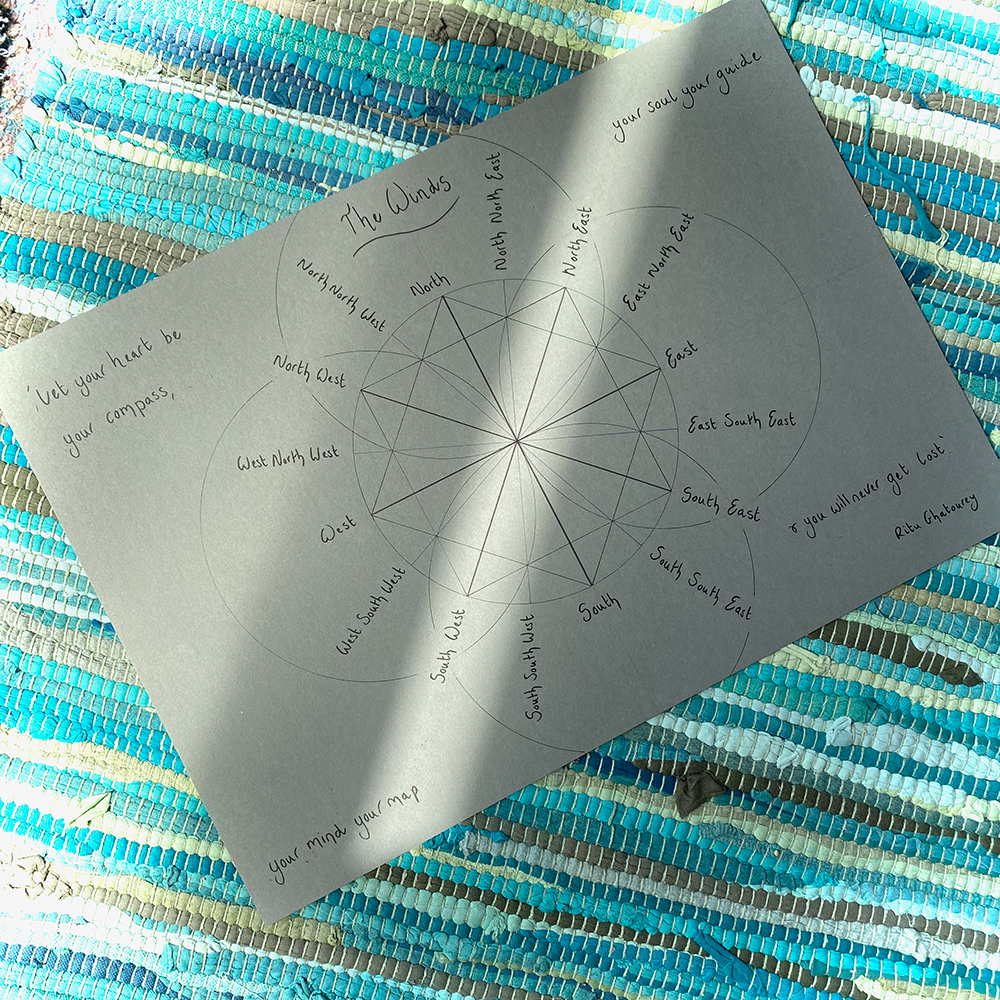 The Winds
'Let your heart be
your compass,
your mind your map
your soul your guide
& you will never get lost'
Ritu Ghatourey
North
North North East
North East
East North East
East
East South East
South East
South South East
South
South South West
South West
West South West
West
West North West
North West
North North West